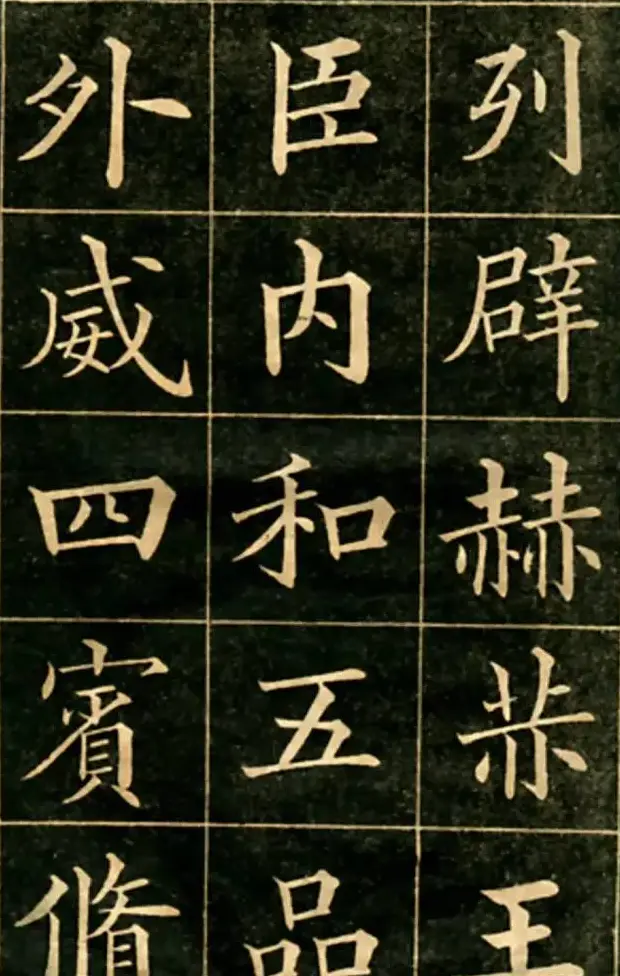 列辟赫王
臣内和五品
外威四賓脩